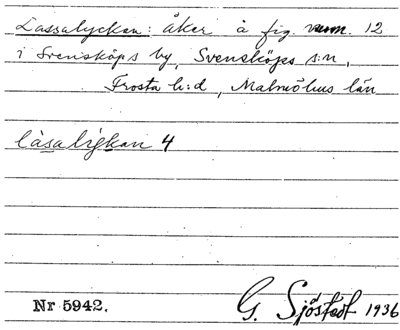 Lassalyckan: åker å fig. num. 12
i Svensköps by, Svensköps s:n,
Frosta h:d, Malmöhus län
làsaligkan 4
Nr 5942.
G. Sjöstedt 1936